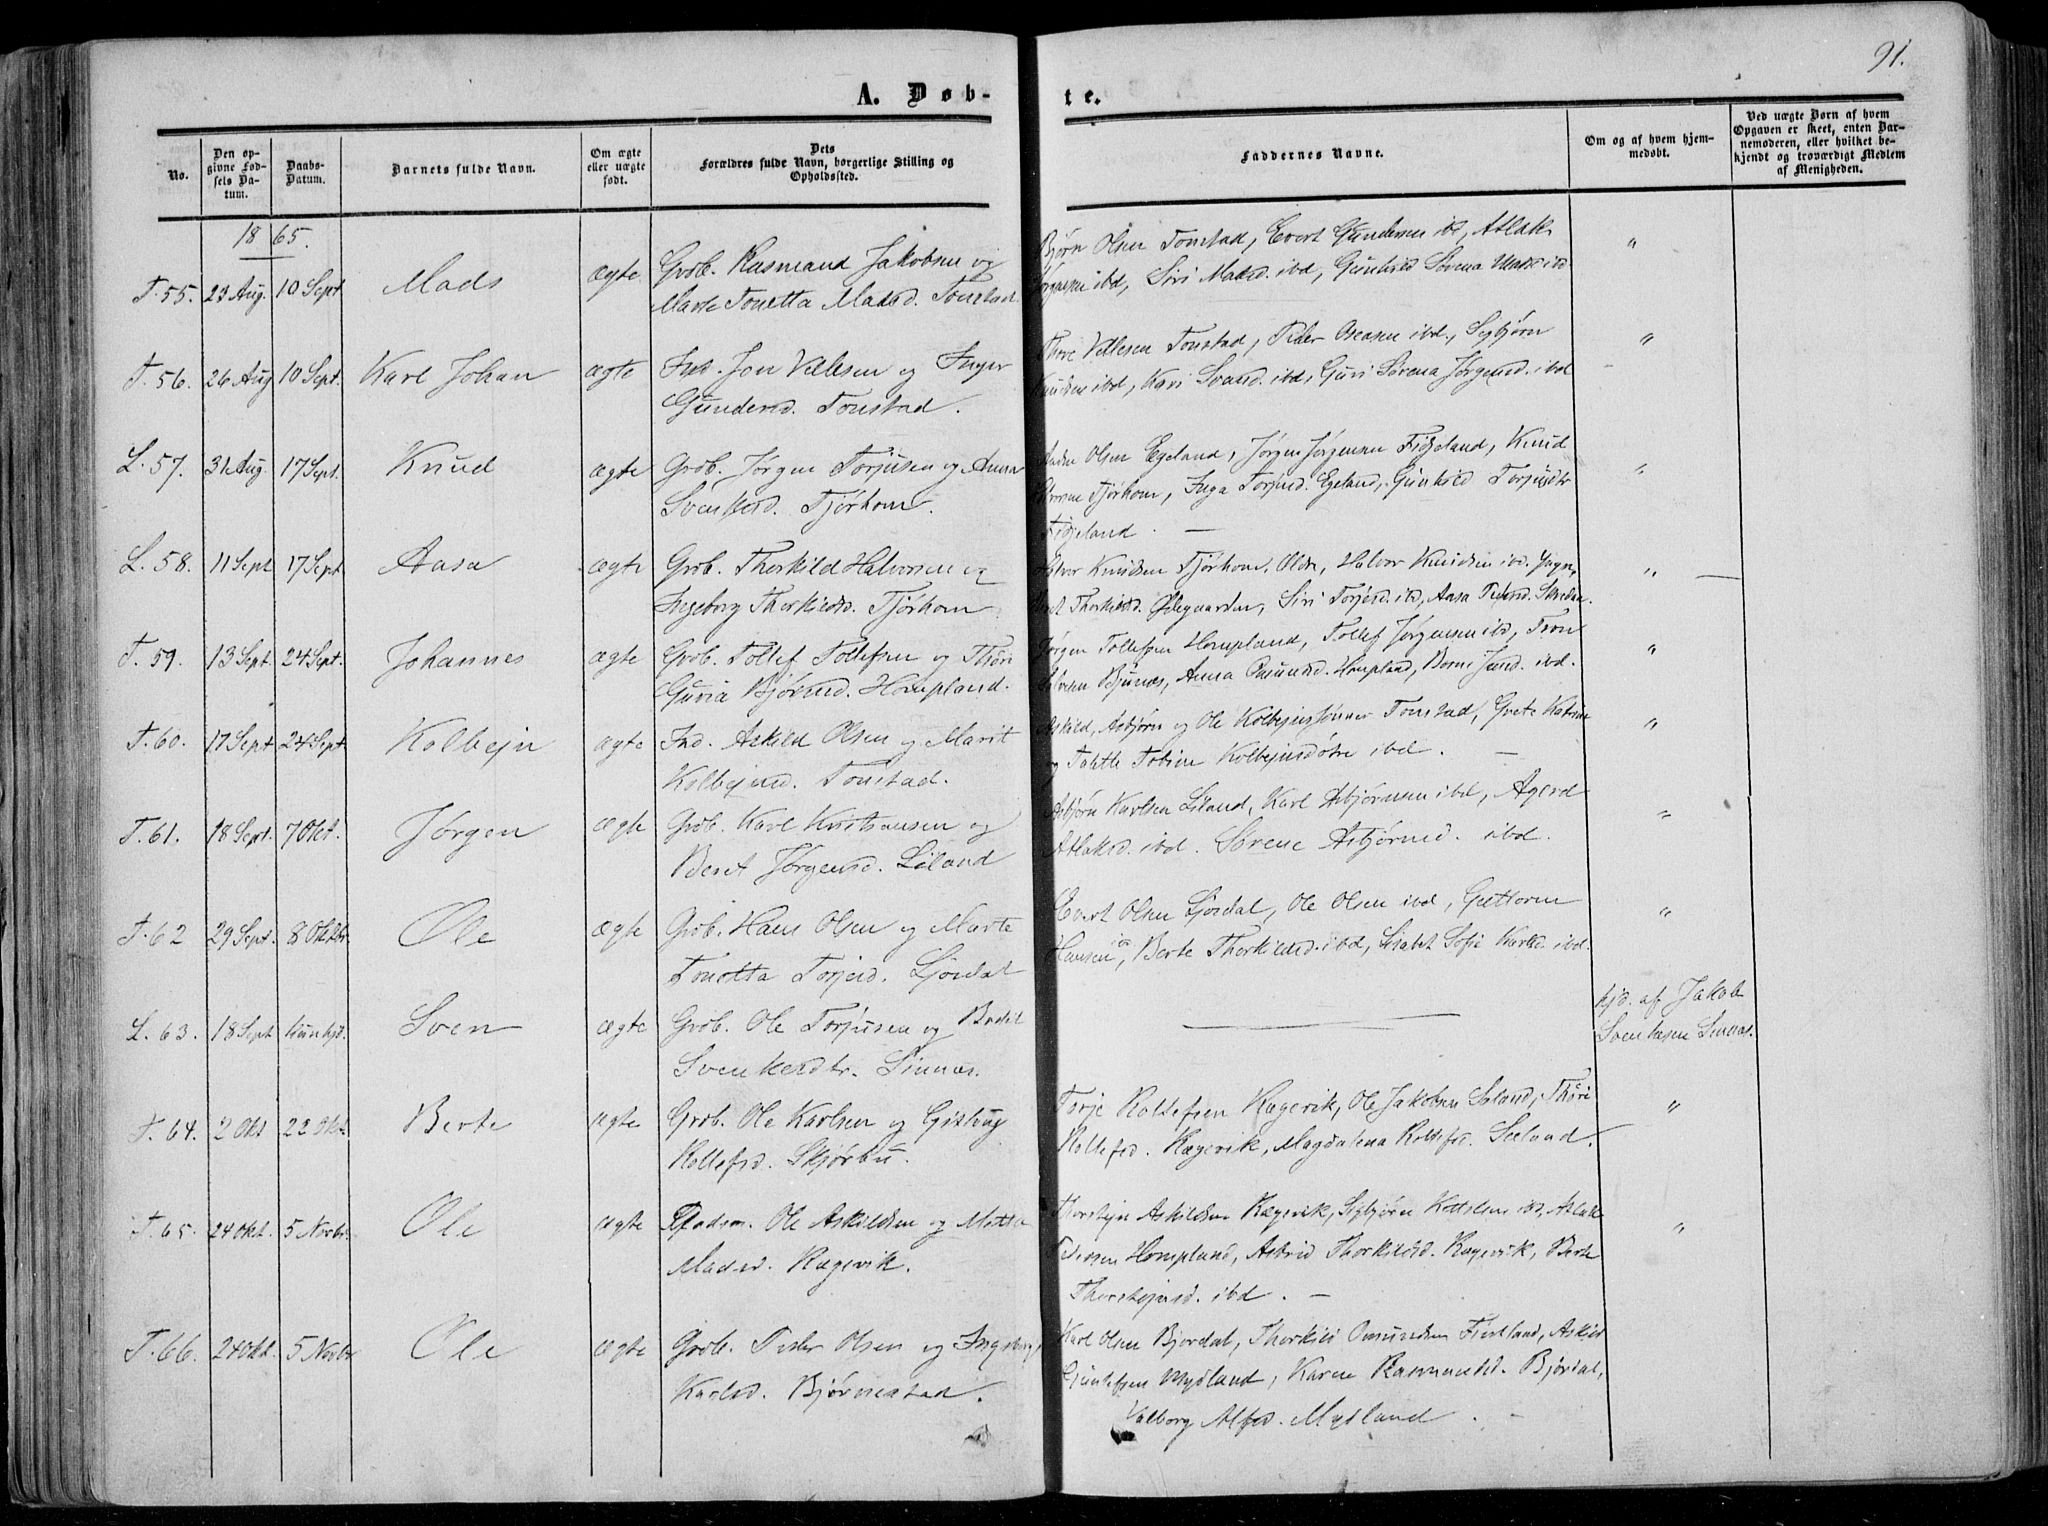 91.
A. Døb-
te.
No.
Den op-
givne Fød-
sels Da-
tum.
Daabs-
Datum.
Barnets fulde Navn.
Om ægte
eller uægte
født.
Dets
Forældres fulde Navn, borgerlige Stilling og
Opholdssted.
Faddernes Navne.
Om og af hvem hjem-
medøbt.
Ved uægte Børn af hvem
Opgaven er skeet, enten Bar-
nemoderen, eller hvilket be-
kjendt og troværdigt Medlem
af Menigheden.
1865.
T. 55. 23 Aug. 10 Sept. Mads ægte Grdb. Rasmand Jakobsen og
Marte Tonetta Madsd. Tonstad.
Bjørn Olsen Tonstad, Evert Gundersen ibd, Atlak
Jørgensen ibd, Siri Madsd. ibd, Gunhild Sørena ibd "
T. 56. 26 Aug 10 Sept. Karl Johan ægte Ind. Jon Vellesen og Inger
Gundersd. Tonstad.
Thore Vellesen Tonstad, Peder Aseasen ibd, Sigbjørn
Knudsen ibd, Kari Svensd. ibd, Guri Sørena Jørgensd. ibd "
L. 57. 31 Aug. 17 Sept. Knud ægte Grdb. Jørgen Torjusen og Anna
Svenkesd. Tjørhom.
Olsen Egeland, Jørgen Jørgensen Fidjeland, Knud
Tjørhom, Inga Torjusd. Egeland, Gunhild Torjusdtr
Fidjeland. — "
L. 58. 11 Sept 17 Sept. Aasa ægte Grdb. Thorkild Halvorsen og
Ingeborg Thorkildsd. Tjørhom
Halvor Knudsen Tjørhom, Halvor Knudsen ibd.
Thorkildsd. Ødegaarden, Siri Torjusd. ibd, Aasa Pedersd. " —
T. 59. 13 Sept. 24 Sept. Johannes ægte Grdb. Tollef Tollefsen og Thøri
Guria Bjørnsd. Hompland.
Jørgen Tollefsen Hompland, Tollef Jørgensen ibd, Tron
Salvesen Bjunæs, Anna Omundsd. Hompland, ibd. "
T. 60. 17 Sept 24 Sept. Kolbejn ægte Ind. Askild Olsen og Marit
Kolbejnsd. Tonstad.
Askild, Asbjørn og Ole Kolbejnssønner Tonstad, Grete Katrine
og Talette Tobine Kolbejnsdøtre ibd. — "
T. 61. 18 Sept. 7 Okt. Jørgen ægte Grdb. Karl Kristiansen og
Beret Jørgensd. Liland
Asbjørn Karlsen Liland, Karl Asbjørnsen ibd, Agerd
Atlaksd. ibd. Sørene Asbjørnsd. ibd. "
T. 62 29 Sept. 8 Oktbr. Ole ægte Grdb. Hans Olsen og Marte
Tonetta Torjesd. Sjørdal
Evert Olsen Sjørdal, Ole Olsen ibd, Guttorm
Hansen ibd, Berte Thorkildsd. ibd, Lisabet Sofie Karlsd. ibd. "
L. 63. 18 Sept kun hjd. Sven ægte Grdb. Ole Torjusen og Bodil
Svenkesdtr. Sinnes. —
hjd. af Jakob
Svenkesen Sinnes.
T. 64. 2 Okt 22 Okt. Berte ægte Grdb. Ole Karlsen og Gislaug
Rollefsd. Skjørbu.
Torje Rollefsen Rægevik, Ole Jakobsen Seland, Thøri
Rollefsd. Rægevik, Magdalena Rollefsd. Seeland. "
T. 65. 24 Okt. 5 Novbr. Ole ægte Pladsm. Ole Askildsen og Metta
Madsd. Rægevik.
Thorstejn Askildsen Rægevik, Sigbjørn Ketelsen ibd, Atlak
Pedersen Hompland, Astrid Thorkildsd. Rægevik, Berte
Thorstejnsd. ibd. — "
T. 66. 24 Okt. 5 Novbr Ole ægte Grdb. Peder Olsen og Ingeborg
Karlsd. Bjørnestad.
Karl Olsen Bjordal, Thorkild Omundsen Fintland, Askild
Guntefsen Mydland, Karen Rasmundsd. Bjørdal,
Valborg Alfsd. Mydland. —